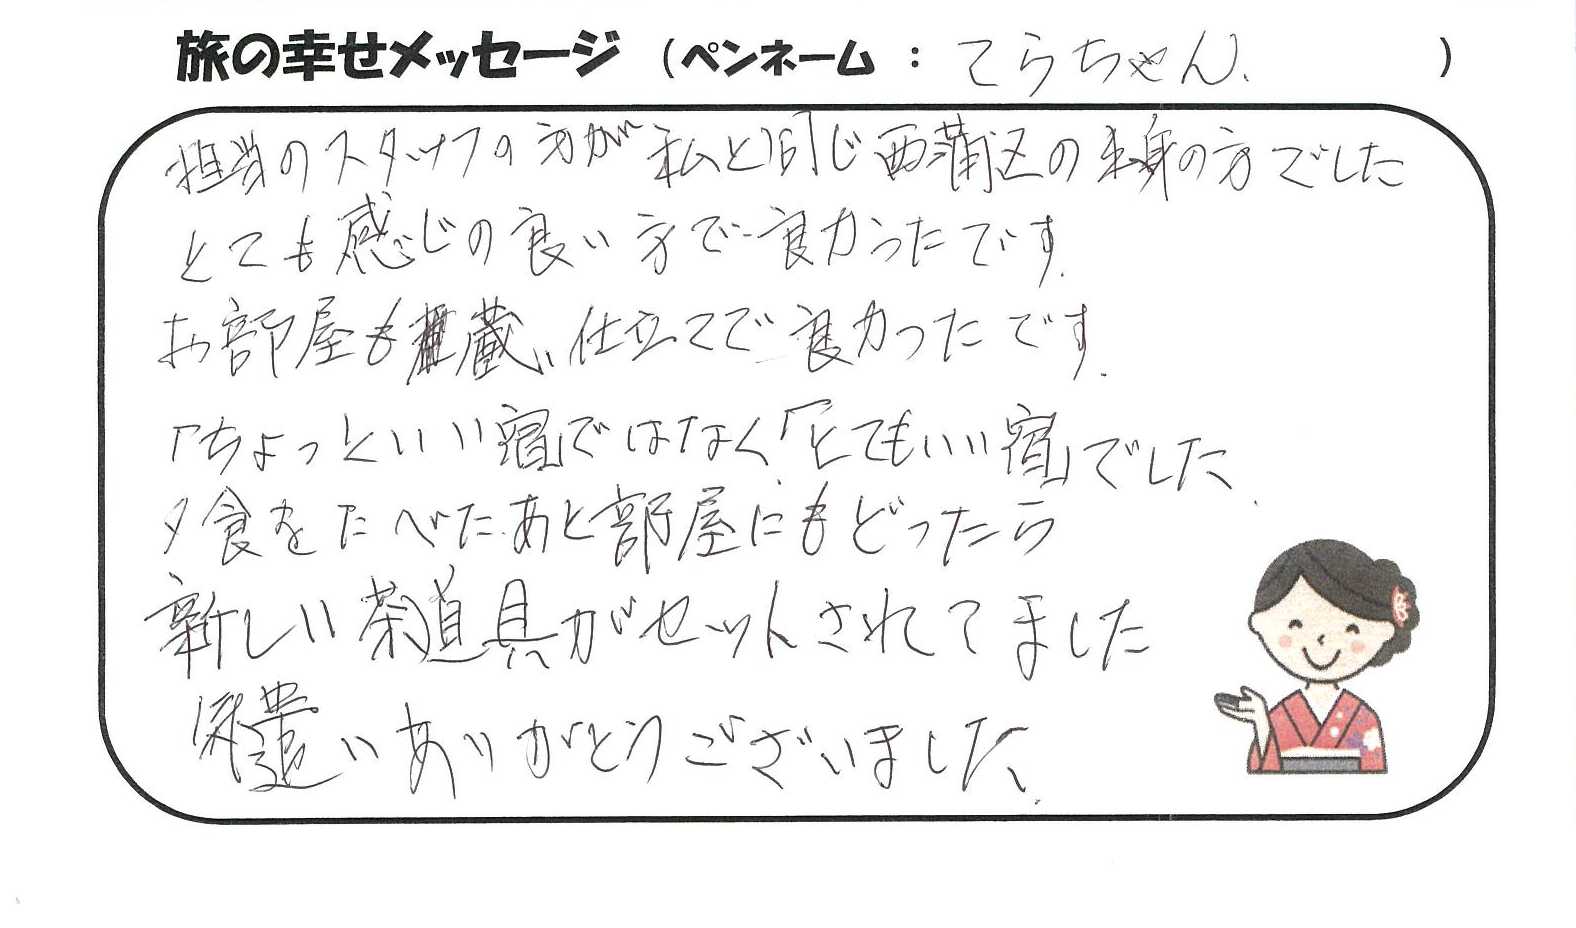 旅の幸せメッセージ (ペンネーム : てらちゃん. )
担当のスタッフの方が私と同じ西蒲区の出身の方でした
とても感じの良い方で良かったです.
お部屋も蔵仕立てで良かったです.
「ちょっといい宿」ではなく「とてもいい宿」でした.
夕食をたべたあと部屋にもどったら
新しい茶道具がセットされてました
気遣いありがとうございました.